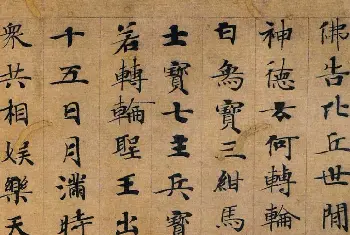 佛告比丘世間
神德云何轉輪
白象寶三紺馬
士寶七主兵寶
若轉輪聖王出
十五日月滿時
衆共相娛樂天